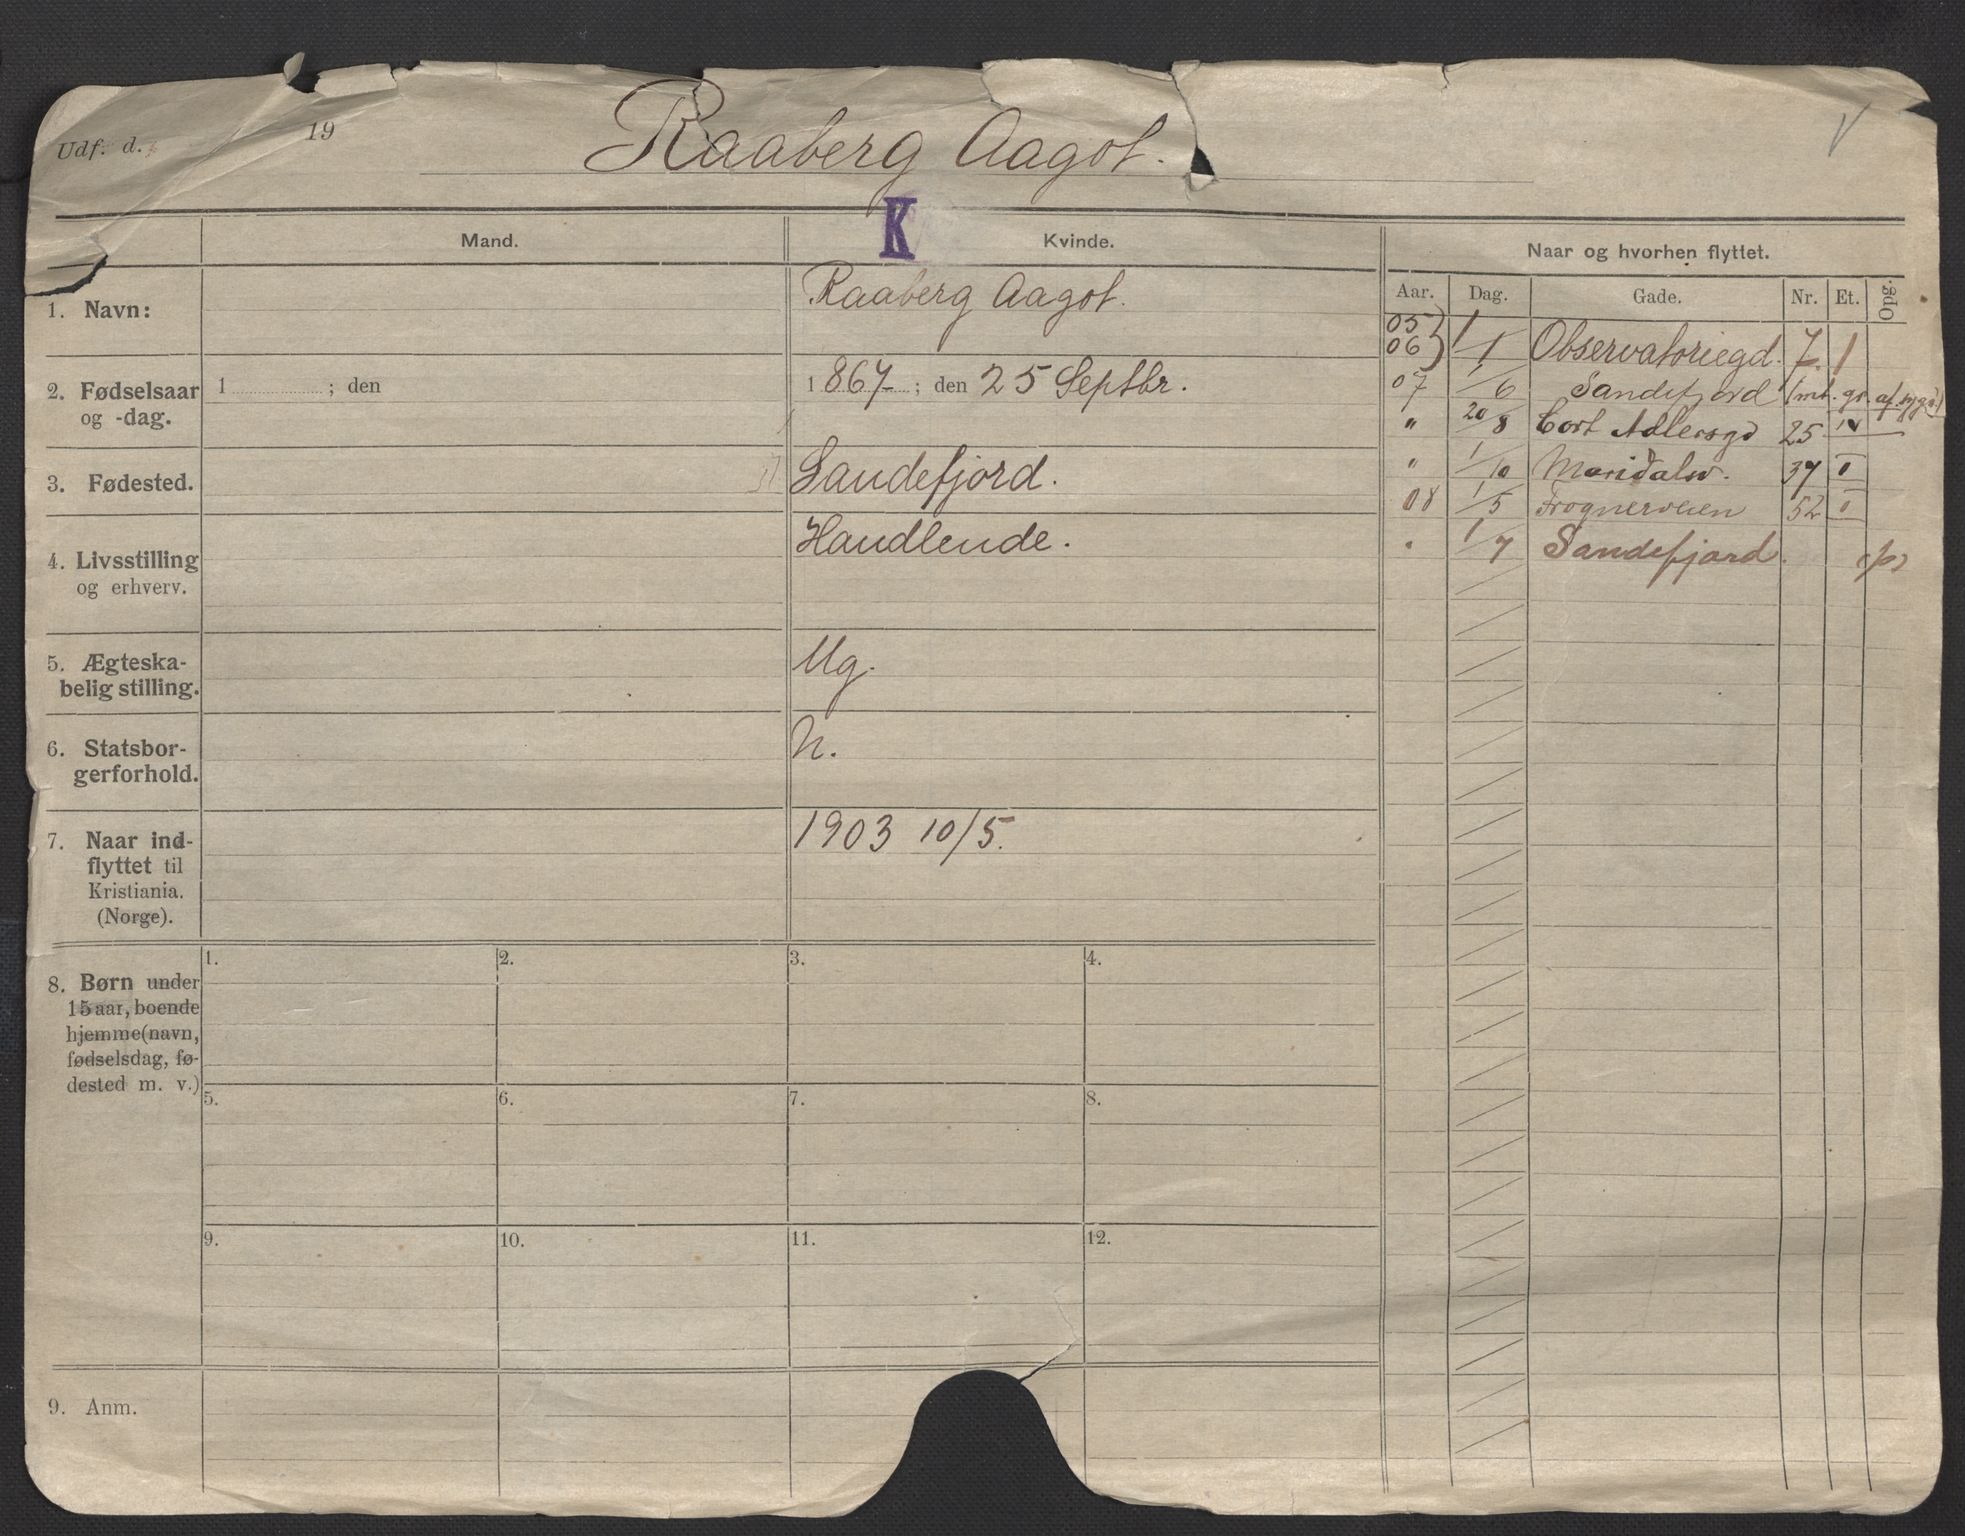 Udf. d. 19
Raaberg Aagot.
K
Mand. Kvinde. Naar og hvorhen flyttet.
Aar. Dag. Gade. Nr. Et. Opg.
1. Navn: Raaberg Aagot.
2. Fødselsaar og -dag. 1 ; den 1867 ; den 25 Septbr.
3. Fødested. Sandefjord.
4. Livsstilling og erhverv. Handlende.
5. Ægteska-
belig stilling. Ug.
6. Statsbor-
gerforhold. N.
7. Naar ind-
flyttet til
Kristiania.
(Norge). 1903 10/5.
8. Børn under
15 aar, boende
hjemme (navn,
fødselsdag, fø-
dested m. v.)
1. 2. 3. 4.
5. 6. 7. 8.
9. 10. 11. 12.
9. Anm.
05
06 } 1/1 Observatoriegd. 7 1
07 1/6 Sandefjord
" 20/8 Cort Adlersgd 25 IV
" 1/10 Maridalsv. 37 II
08 1/5 Frognerveien 52 II
" 1/7 Sandefjord. (p)